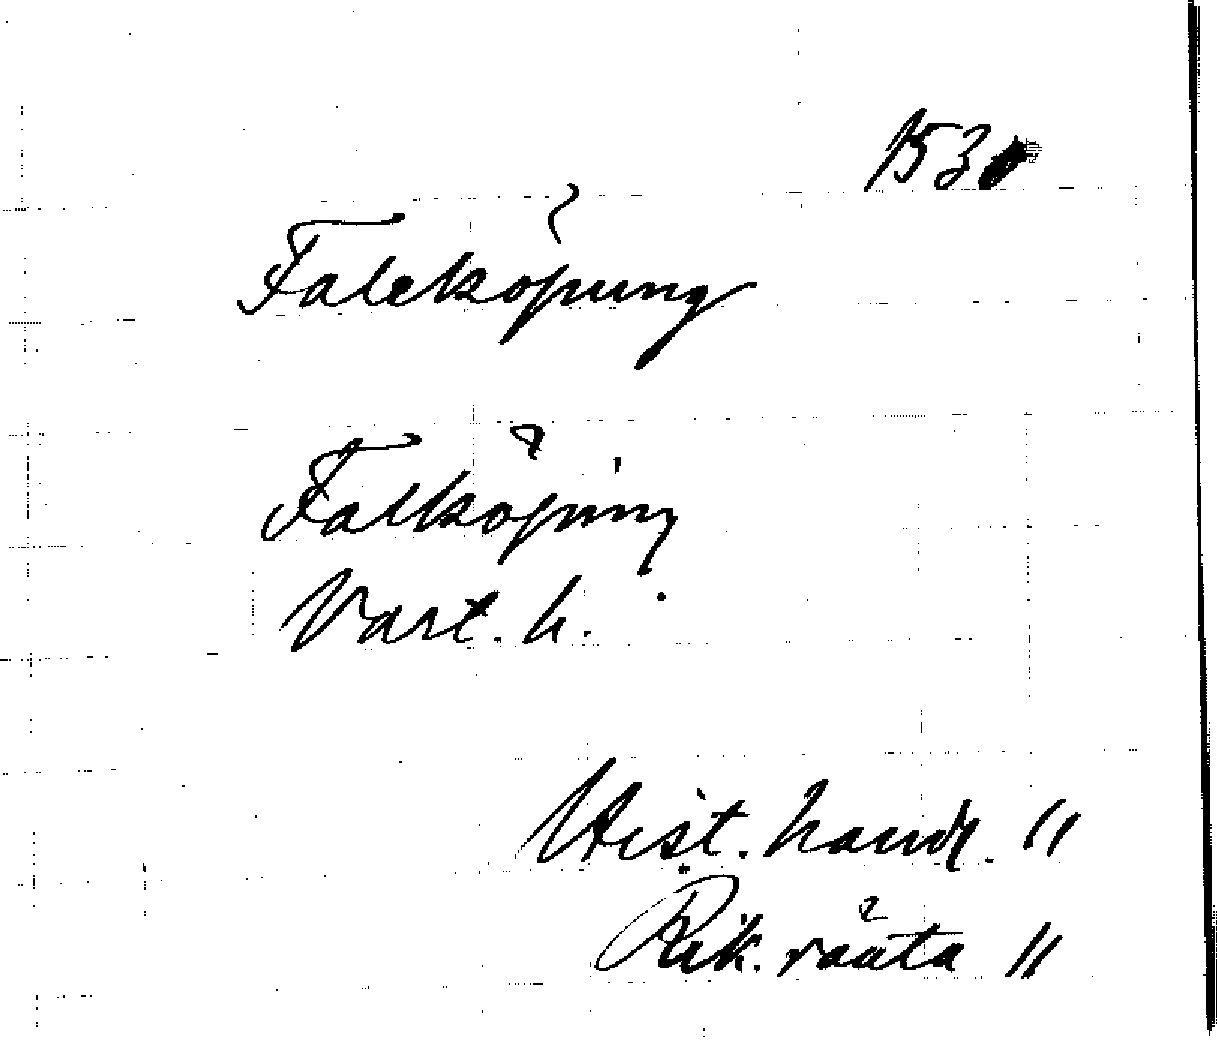 1530
Faleköpung
Falköping
Vart. h.
Hist. handl. 11
Räk. 11